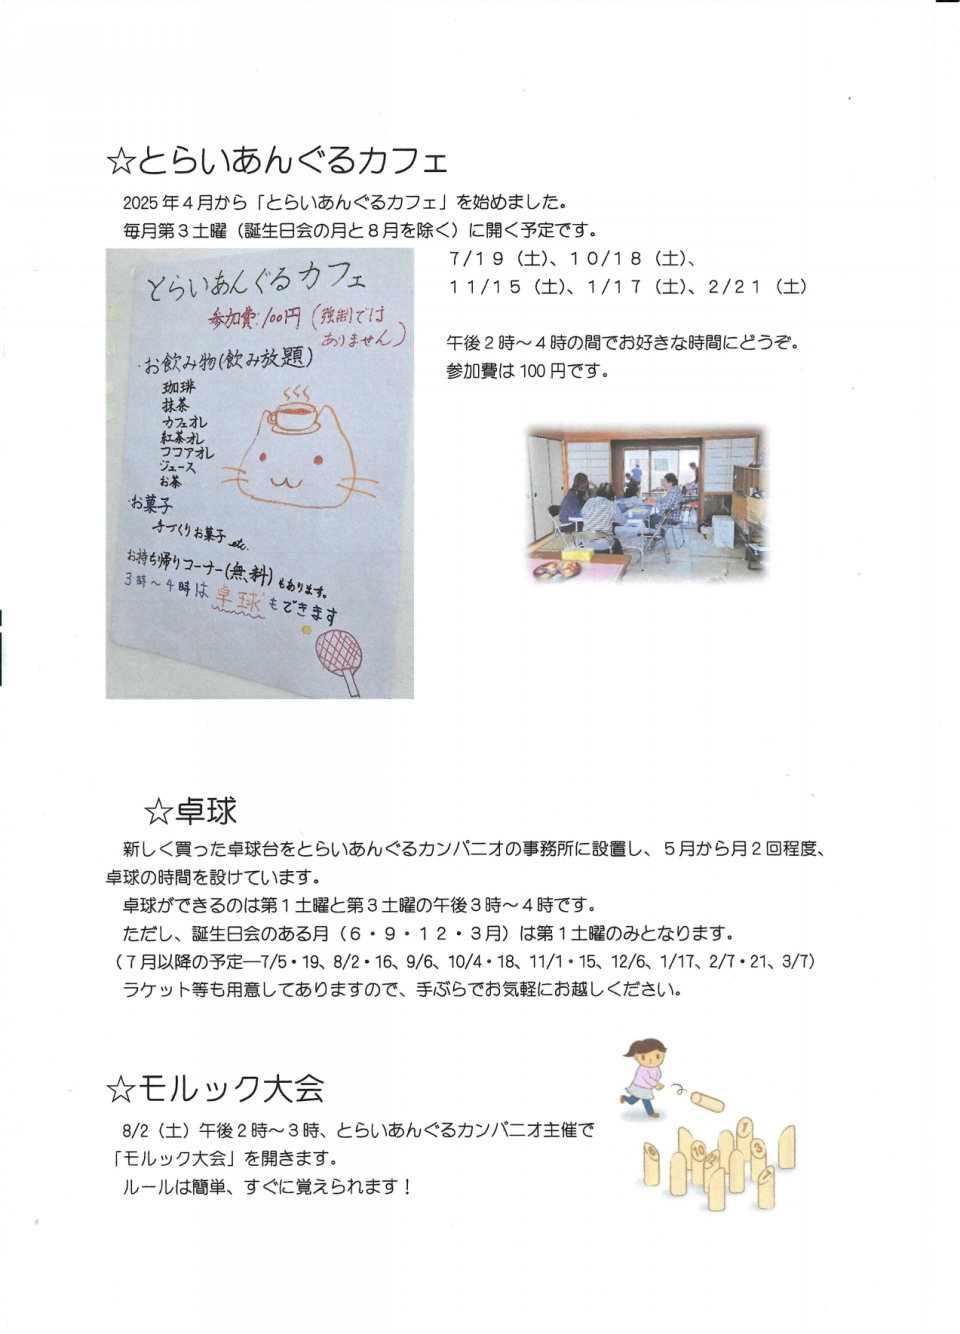 ☆とらいあんぐるカフェ
2025年４月から「とらいあんぐるカフェ」を始めました。
毎月第３土曜（誕生日会の月と８月を除く）に開く予定です。
７/１９（土）、１０/１８（土）、
１１/１５（土）、１/１７（土）、２/２１（土）
午後２時～４時の間でお好きな時間にどうぞ。
参加費は100円です。
とらいあんぐるカフェ
参加費:100円(強制では
ありません)
・お飲み物(飲み放題)
珈琲
抹茶
カフェオレ
紅茶オレ
ココアオレ
ジュース
お茶
・お菓子
手づくりお菓子 etc.
お持ち帰りコーナー(無料)もあります。
3時～4時は卓球もできます
☆卓球
新しく買った卓球台をとらいあんぐるカンパニオの事務所に設置し、５月から月２回程度、
卓球の時間を設けています。
卓球ができるのは第１土曜と第３土曜の午後３時～４時です。
ただし、誕生日会のある月（６・９・１２・３月）は第１土曜のみとなります。
（７月以降の予定―7/5・19、8/2・16、9/6、10/4・18、11/1・15、12/6、1/17、2/7・21、3/7）
ラケット等も用意してありますので、手ぶらでお気軽にお越しください。
☆モルック大会
8/2（土）午後２時～３時、とらいあんぐるカンパニオ主催で
「モルック大会」を開きます。
ルールは簡単、すぐに覚えられます！